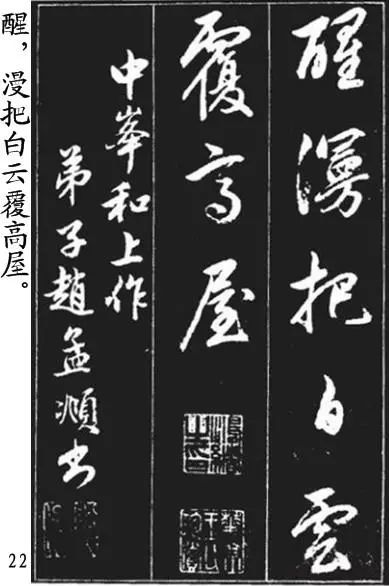 醒漫把白雲
覆高屋
中峯和上作
弟子趙孟頫书
醒，漫把白云覆高屋。
22